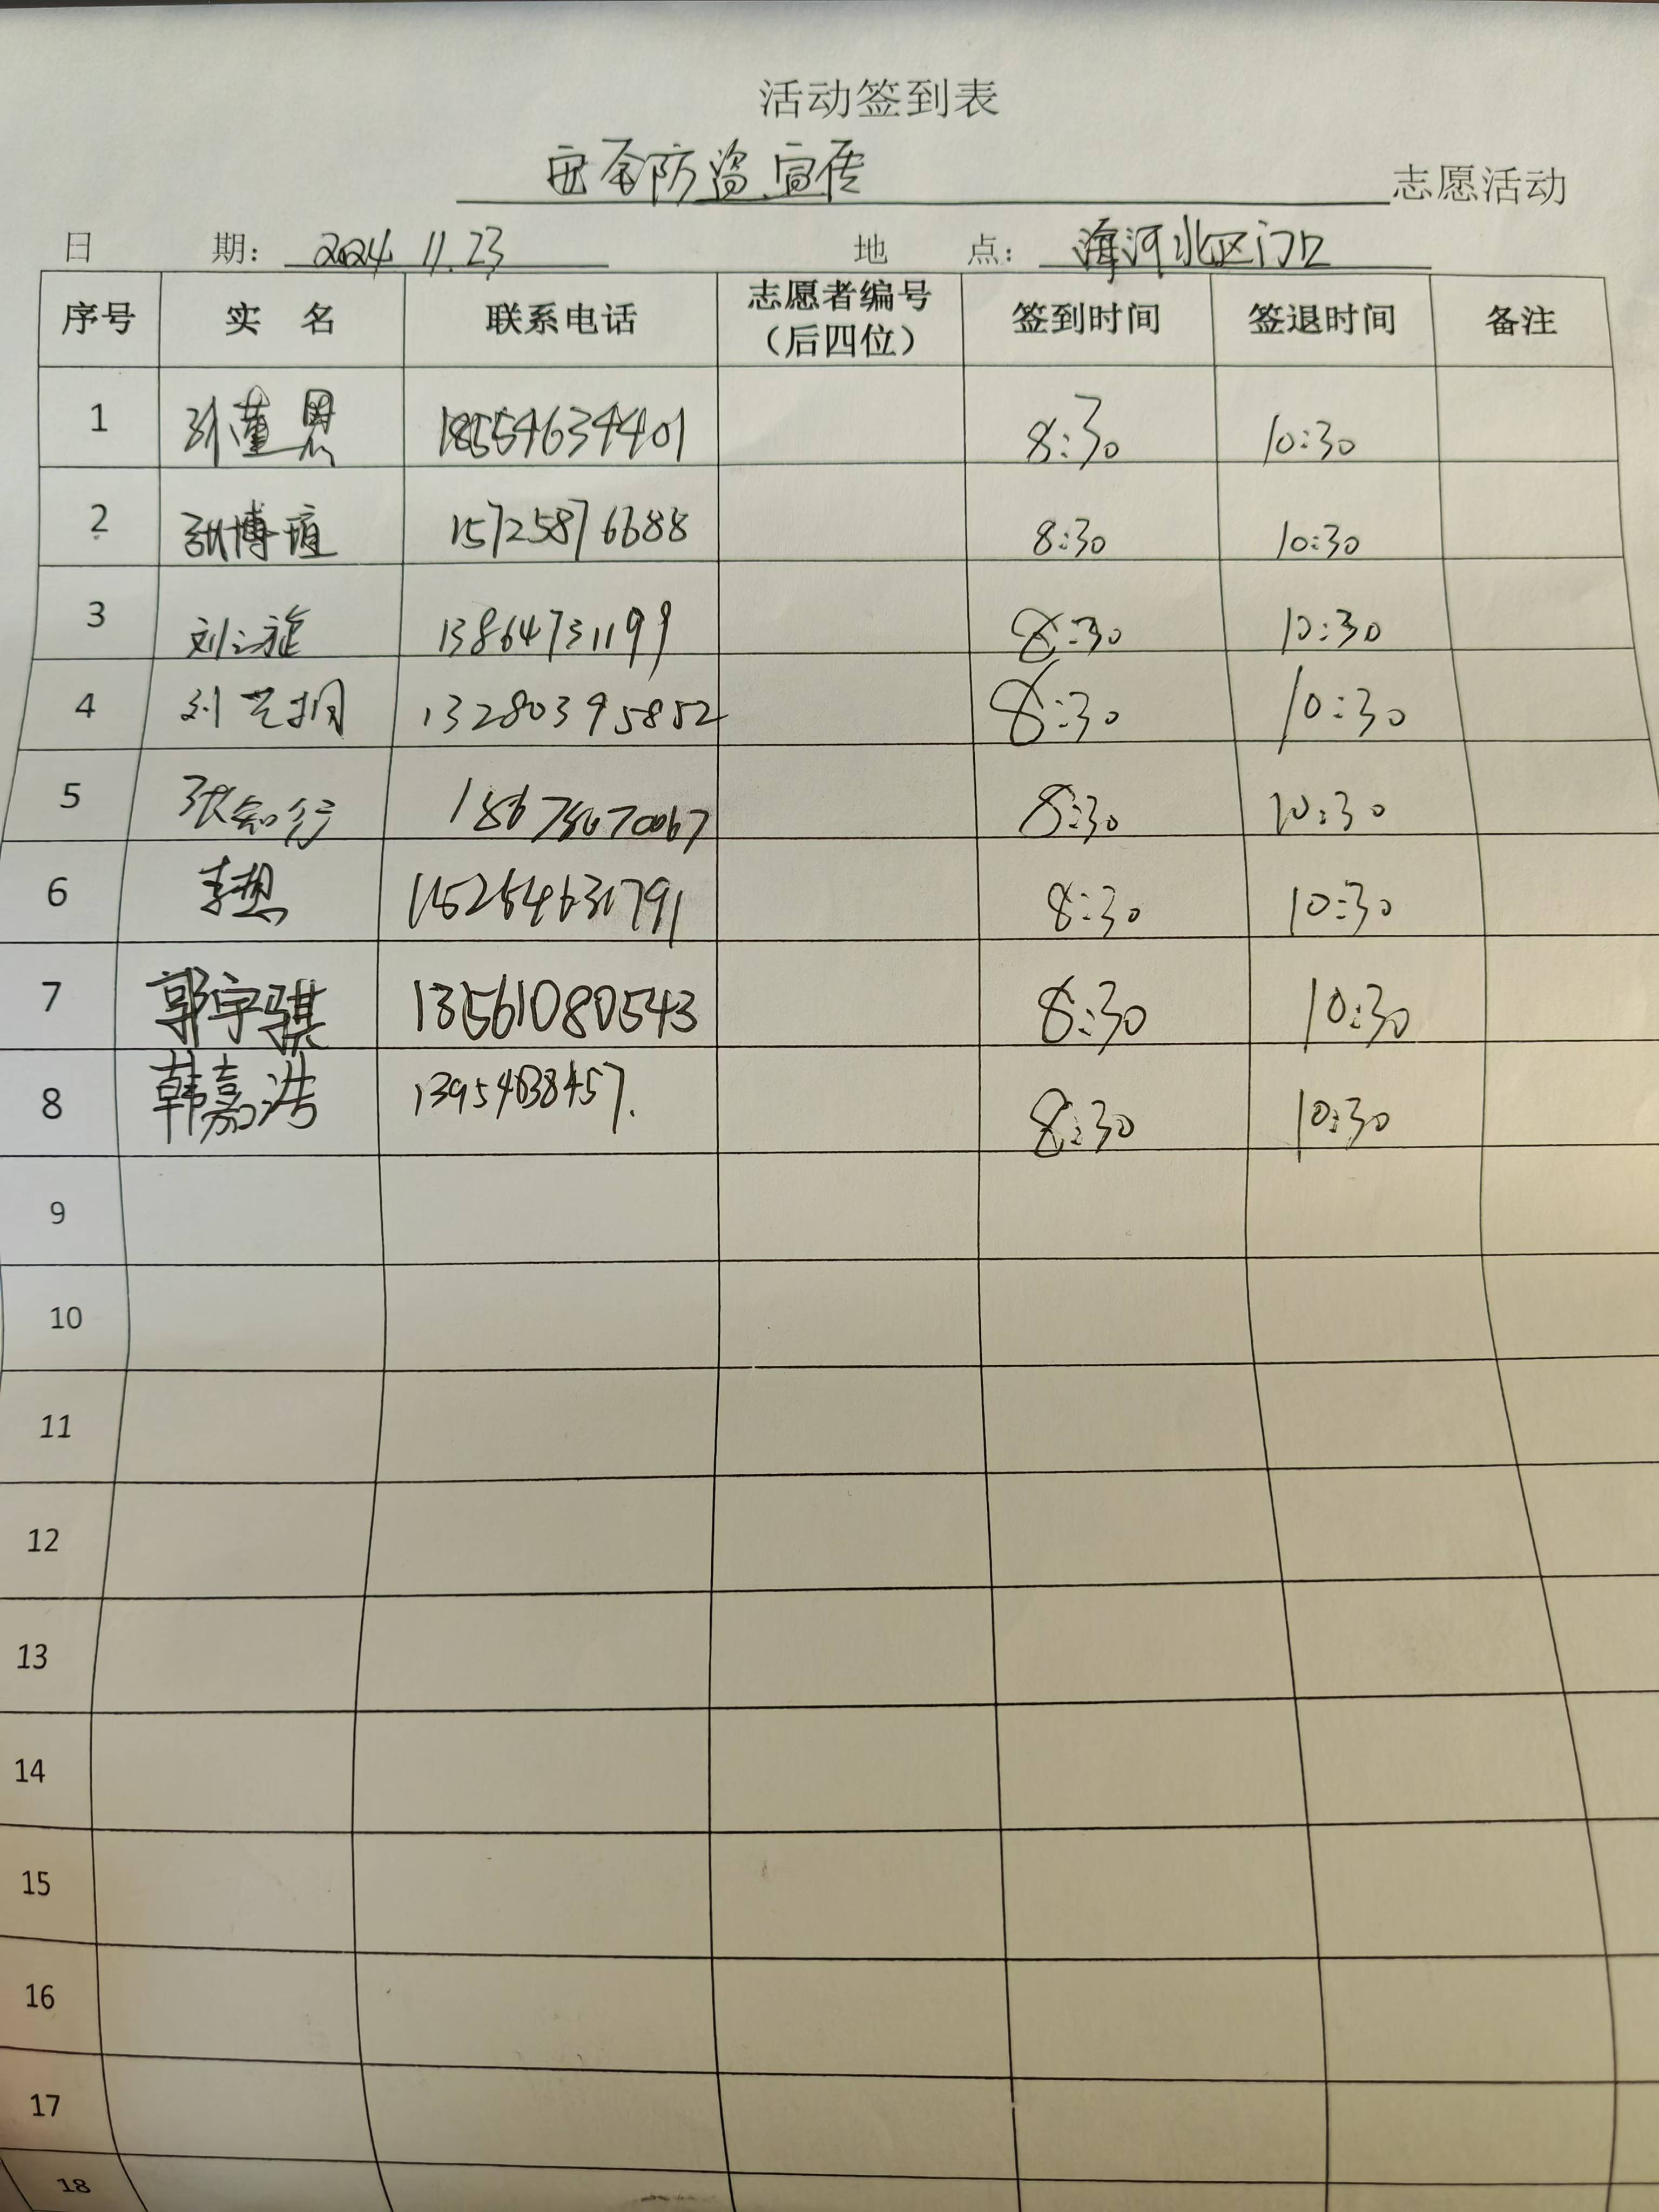 活动签到表
安全防盗宣传 志愿活动
日 期： 2024 11.23 地 点： 海河北区门口
序号 实 名 联系电话 志愿者编号（后四位） 签到时间 签退时间 备注
1 18554634401 8:30 10:30
2 张博 15725876688 8:30 10:30
3 刘 13864731199 8:30 10:30
4 刘艺桐 13280395852 8:30 10:30
5 张知行 8:30 10:30
6 李想 15254631791 8:30 10:30
7 郭宇骐 13561080543 8:30 10:30
8 韩嘉浩 8:30 10:30
9
10
11
12
13
14
15
16
17
18